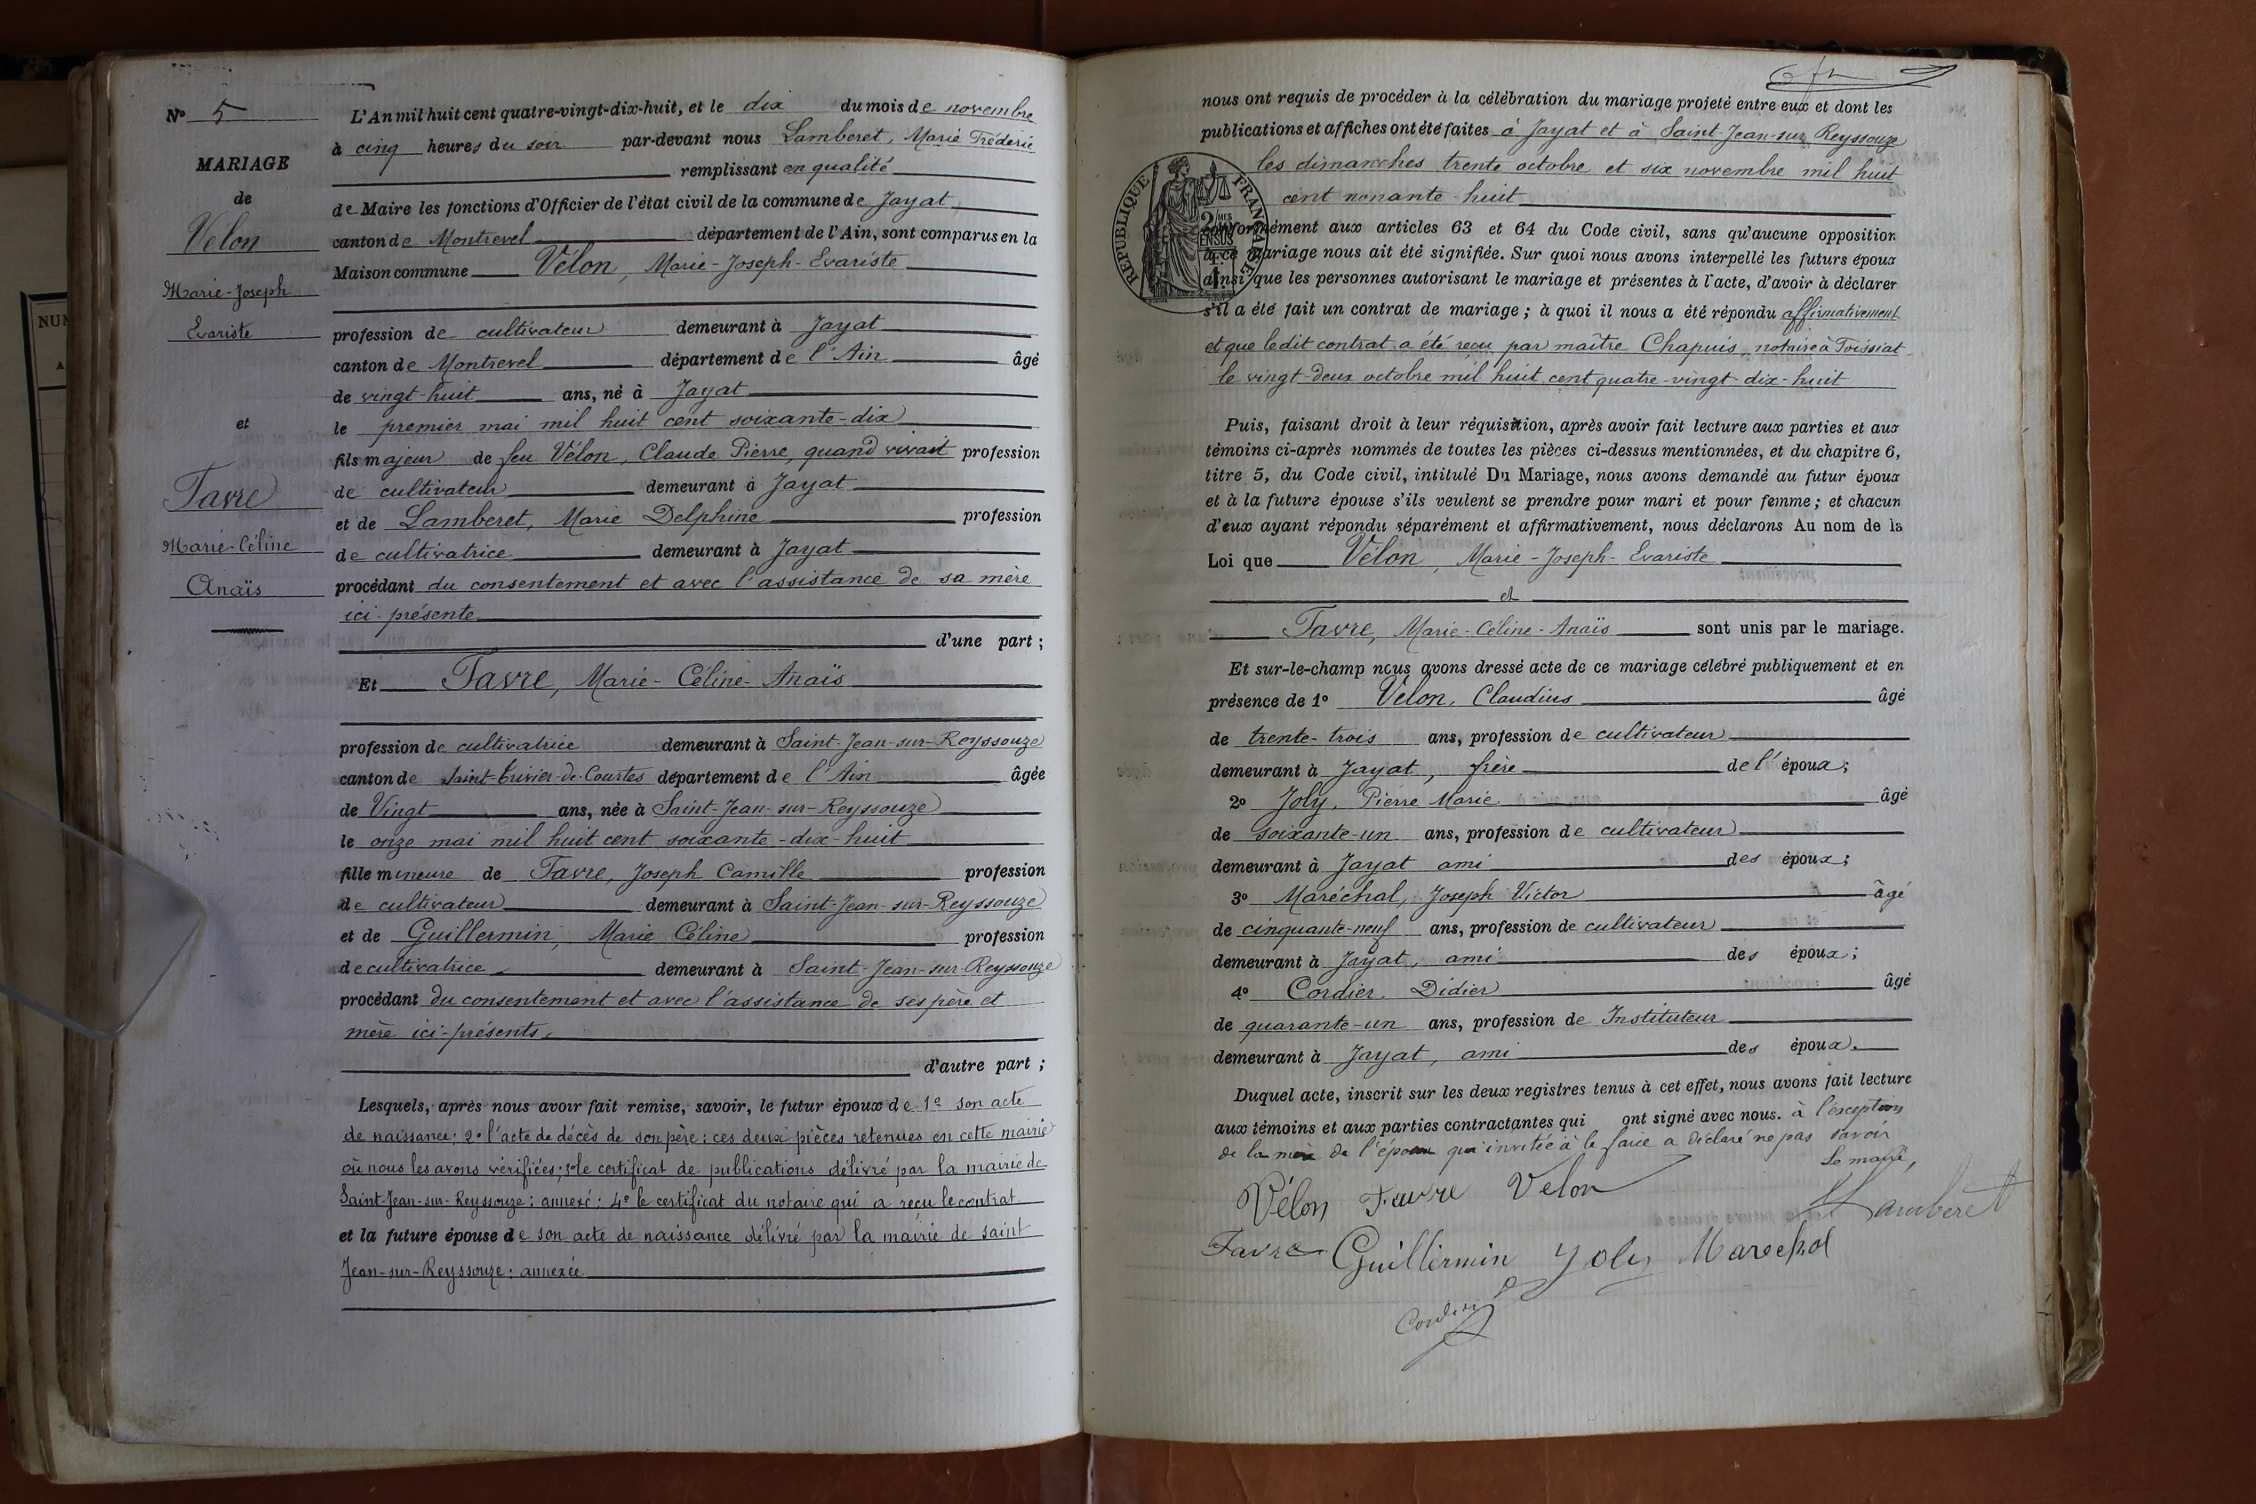 N° 5
MARIAGE
de
Velon
Marie-Joseph
Evariste
et
Favre
Marie-Céline
Anaïs
L'An mil huit cent quatre-vingt-dix-huit, et le dix du mois de novembre
à cinq heures du soir par-devant nous Lamberet, Marie Fréderic
remplissant en qualité
de Maire les fonctions d'Officier de l'état civil de la commune de Jayat
canton de Montrevel département de l'Ain, sont comparus en la
Maison commune Vélon, Marie-Joseph-Evariste
profession de cultivateur demeurant à Jayat
canton de Montrevel département de l'Ain âgé
de vingt-huit ans, né à Jayat
le premier mai mil huit cent soixante-dix
fils majeur de feu Vélon, Claude Pierre, quand vivait profession
de cultivateur demeurant à Jayat
et de Lamberet, Marie Delphine profession
de cultivatrice demeurant à Jayat
procédant du consentement et avec l'assistance de sa mère
ici-présente
d'une part ;
Et Favre, Marie-Céline-Anaïs
profession de cultivatrice demeurant à Saint-Jean-sur-Reyssouze
canton de Saint-Trivier-de-Courtes département de l'Ain âgée
de Vingt ans, née à Saint-Jean-sur-Reyssouze
le onze mai mil huit cent soixante-dix-huit
fille mineure de Favre, Joseph Camille profession
de cultivateur demeurant à Saint-Jean-sur-Reyssouze
et de Guillermin, Marie Céline profession
de cultivatrice demeurant à Saint-Jean-sur-Reyssouze
procédant du consentement et avec l'assistance de ses père et
mère ici-présents.
d'autre part ;
Lesquels, après nous avoir fait remise, savoir, le futur époux de 1° son acte
de naissance ; 2° l'acte de décès de son père : ces deux pièces retenues en cette mairie
où nous les avons vérifiées ; 3° le certificat de publications délivré par la mairie de
Saint-Jean-sur-Reyssouze : annexé : 4° le certificat du notaire qui a reçu le contrat
et la future épouse de son acte de naissance délivré par la mairie de saint
Jean-sur-Reyssouze : annexée
nous ont requis de procéder à la célébration du mariage projeté entre eux et dont les
publications et affiches ont été faites à Jayat et à Saint-Jean-sur-Reyssouze
les dimanches trente octobre et six novembre mil huit
cent nonante-huit
REPUBLIQUE FRANÇAISE
conformément aux articles 63 et 64 du Code civil, sans qu'aucune opposition
à ce mariage nous ait été signifiée. Sur quoi nous avons interpellé les futurs époux
ainsi que les personnes autorisant le mariage et présentes à l'acte, d'avoir à déclarer
s'il a été fait un contrat de mariage ; à quoi il nous a été répondu affirmativement
et que ledit contrat a été reçu par maître Chapuis, notaire à Foissiat
le vingt-deux octobre mil huit cent quatre-vingt-dix-huit
Puis, faisant droit à leur réquisition, après avoir fait lecture aux parties et aux
témoins ci-après nommés de toutes les pièces ci-dessus mentionnées, et du chapitre 6,
titre 5, du Code civil, intitulé Du Mariage, nous avons demandé au futur époux
et à la future épouse s'ils veulent se prendre pour mari et pour femme ; et chacun
d'eux ayant répondu séparément et affirmativement, nous déclarons Au nom de la
Loi que Vélon, Marie-Joseph-Evariste
et
Favre, Marie-Céline-Anaïs sont unis par le mariage.
Et sur-le-champ nous avons dressé acte de ce mariage célébré publiquement et en
présence de 1° Vélon, Claudius âgé
de trente-trois ans, profession de cultivateur
demeurant à Jayat, frère de l'époux ;
2° Joly, Pierre Marie âgé
de soixante-un ans, profession de cultivateur
demeurant à Jayat ami des époux ;
3° Maréchal, Joseph Victor âgé
de cinquante-neuf ans, profession de cultivateur
demeurant à Jayat, ami des époux ;
4° Cordier Didier âgé
de quarante-un ans, profession de Instituteur
demeurant à Jayat, ami des époux.
Duquel acte, inscrit sur les deux registres tenus à cet effet, nous avons fait lecture
aux témoins et aux parties contractantes qui ont signé avec nous. à l'exception
de la mère de l'époux qui invitée à le faire a déclaré ne pas savoir
Le maire,
Vélon Favre Velon Lamberet
Favre Guillermin Joly Marechal
Cordier